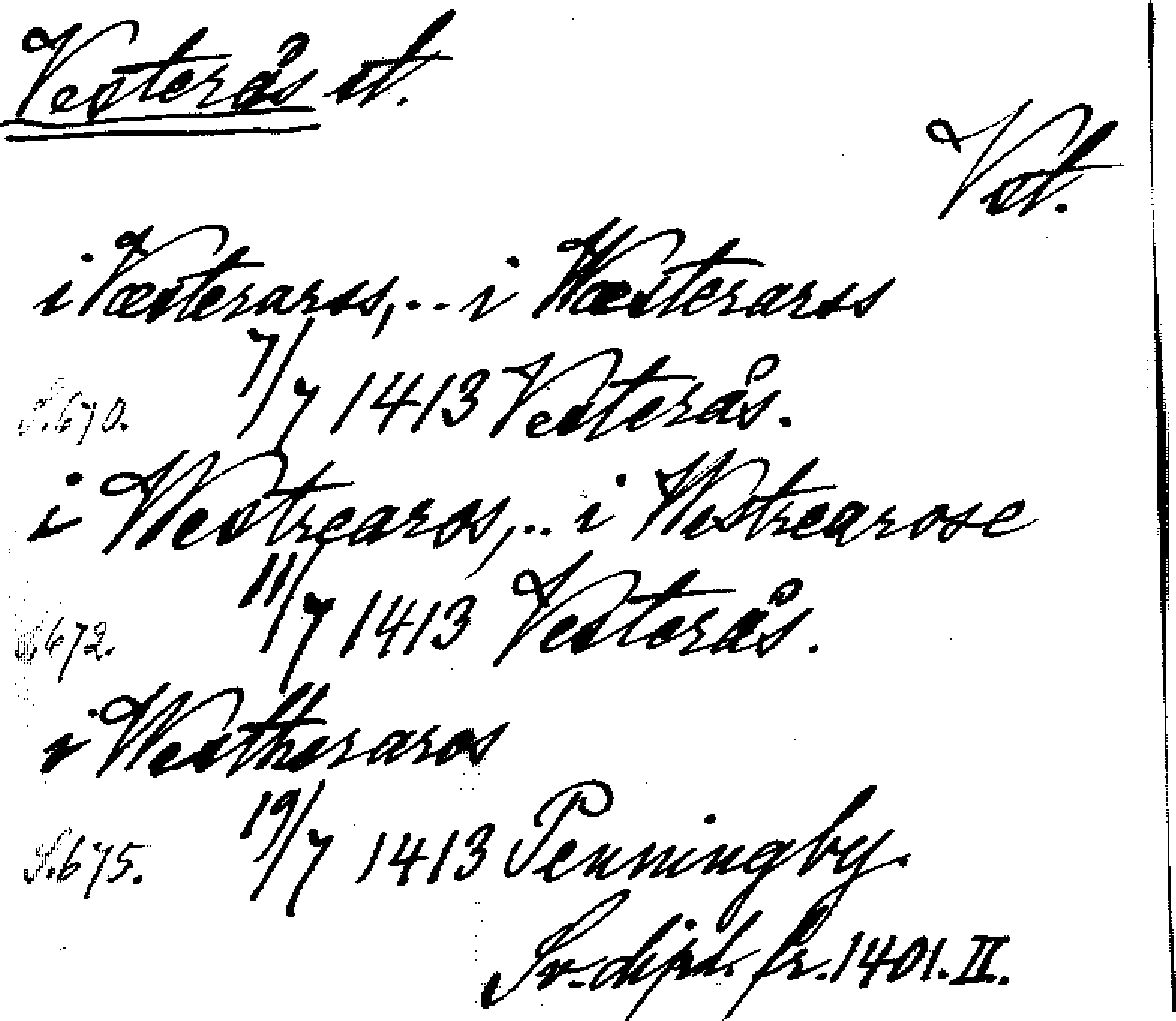 Vesterås st.
Vst.
i Væsterarss,.. i Wæsterarss
S. 670. 7/7 1413 Vesterås.
i Westrearos,.. i Westrearose
S. 672. 11/7 1413 Vesterås.
i Westheraros
S. 675. 19/7 1413 Penningby.
Sv. dipl. fr. 1401. II.